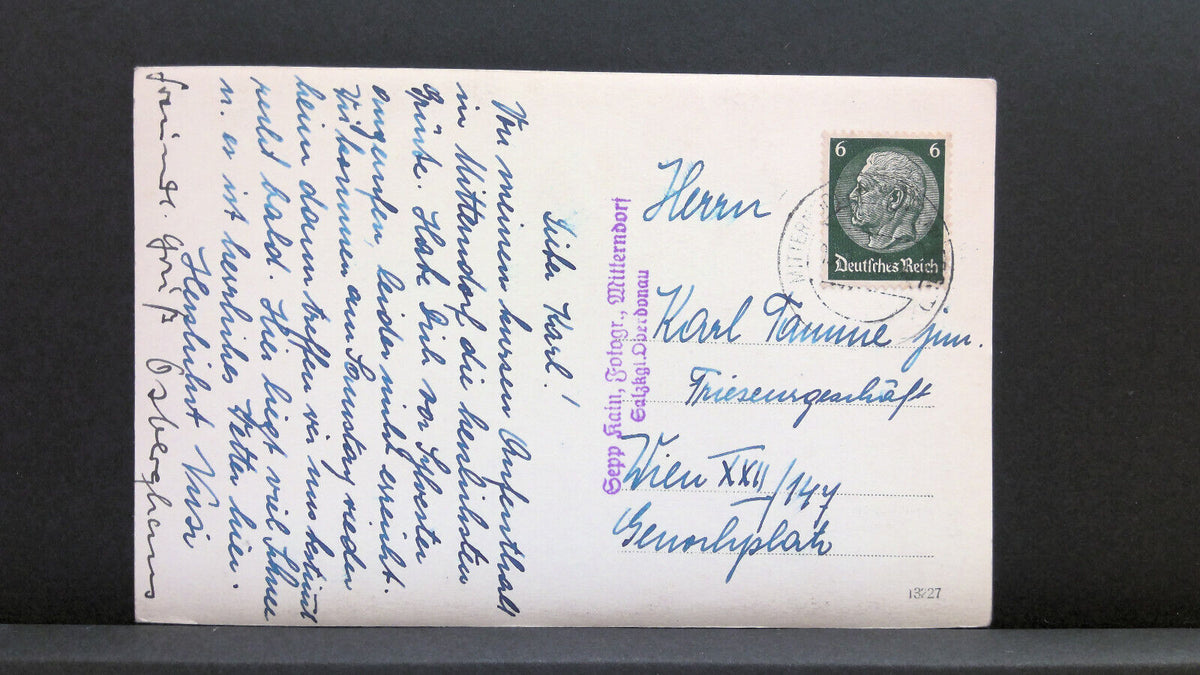 Lieber Karl!
Von meinem kurzen Aufenthalt
in Mitterndorf die herzlichsten
Grüße. Habe Dich vor Sylvester
angerufen, leider nicht erreicht.
Wir kommen am Sonnstag wieder
heim dann treffen wir uns bestimmt
recht bald. Hier liegt viel Schnee
u. es ist herrliches Wetter hier.
Herzlichst
Gruß
Sepp Kain, Fotogr., Mitterndorf
Salzkgt. Oberdonau
6 6
Deutsches Reich
MITTERN
Herrn
Karl Tamme jun.
Friseurgeschäft
Wien XXII/147
Genochplatz
13227